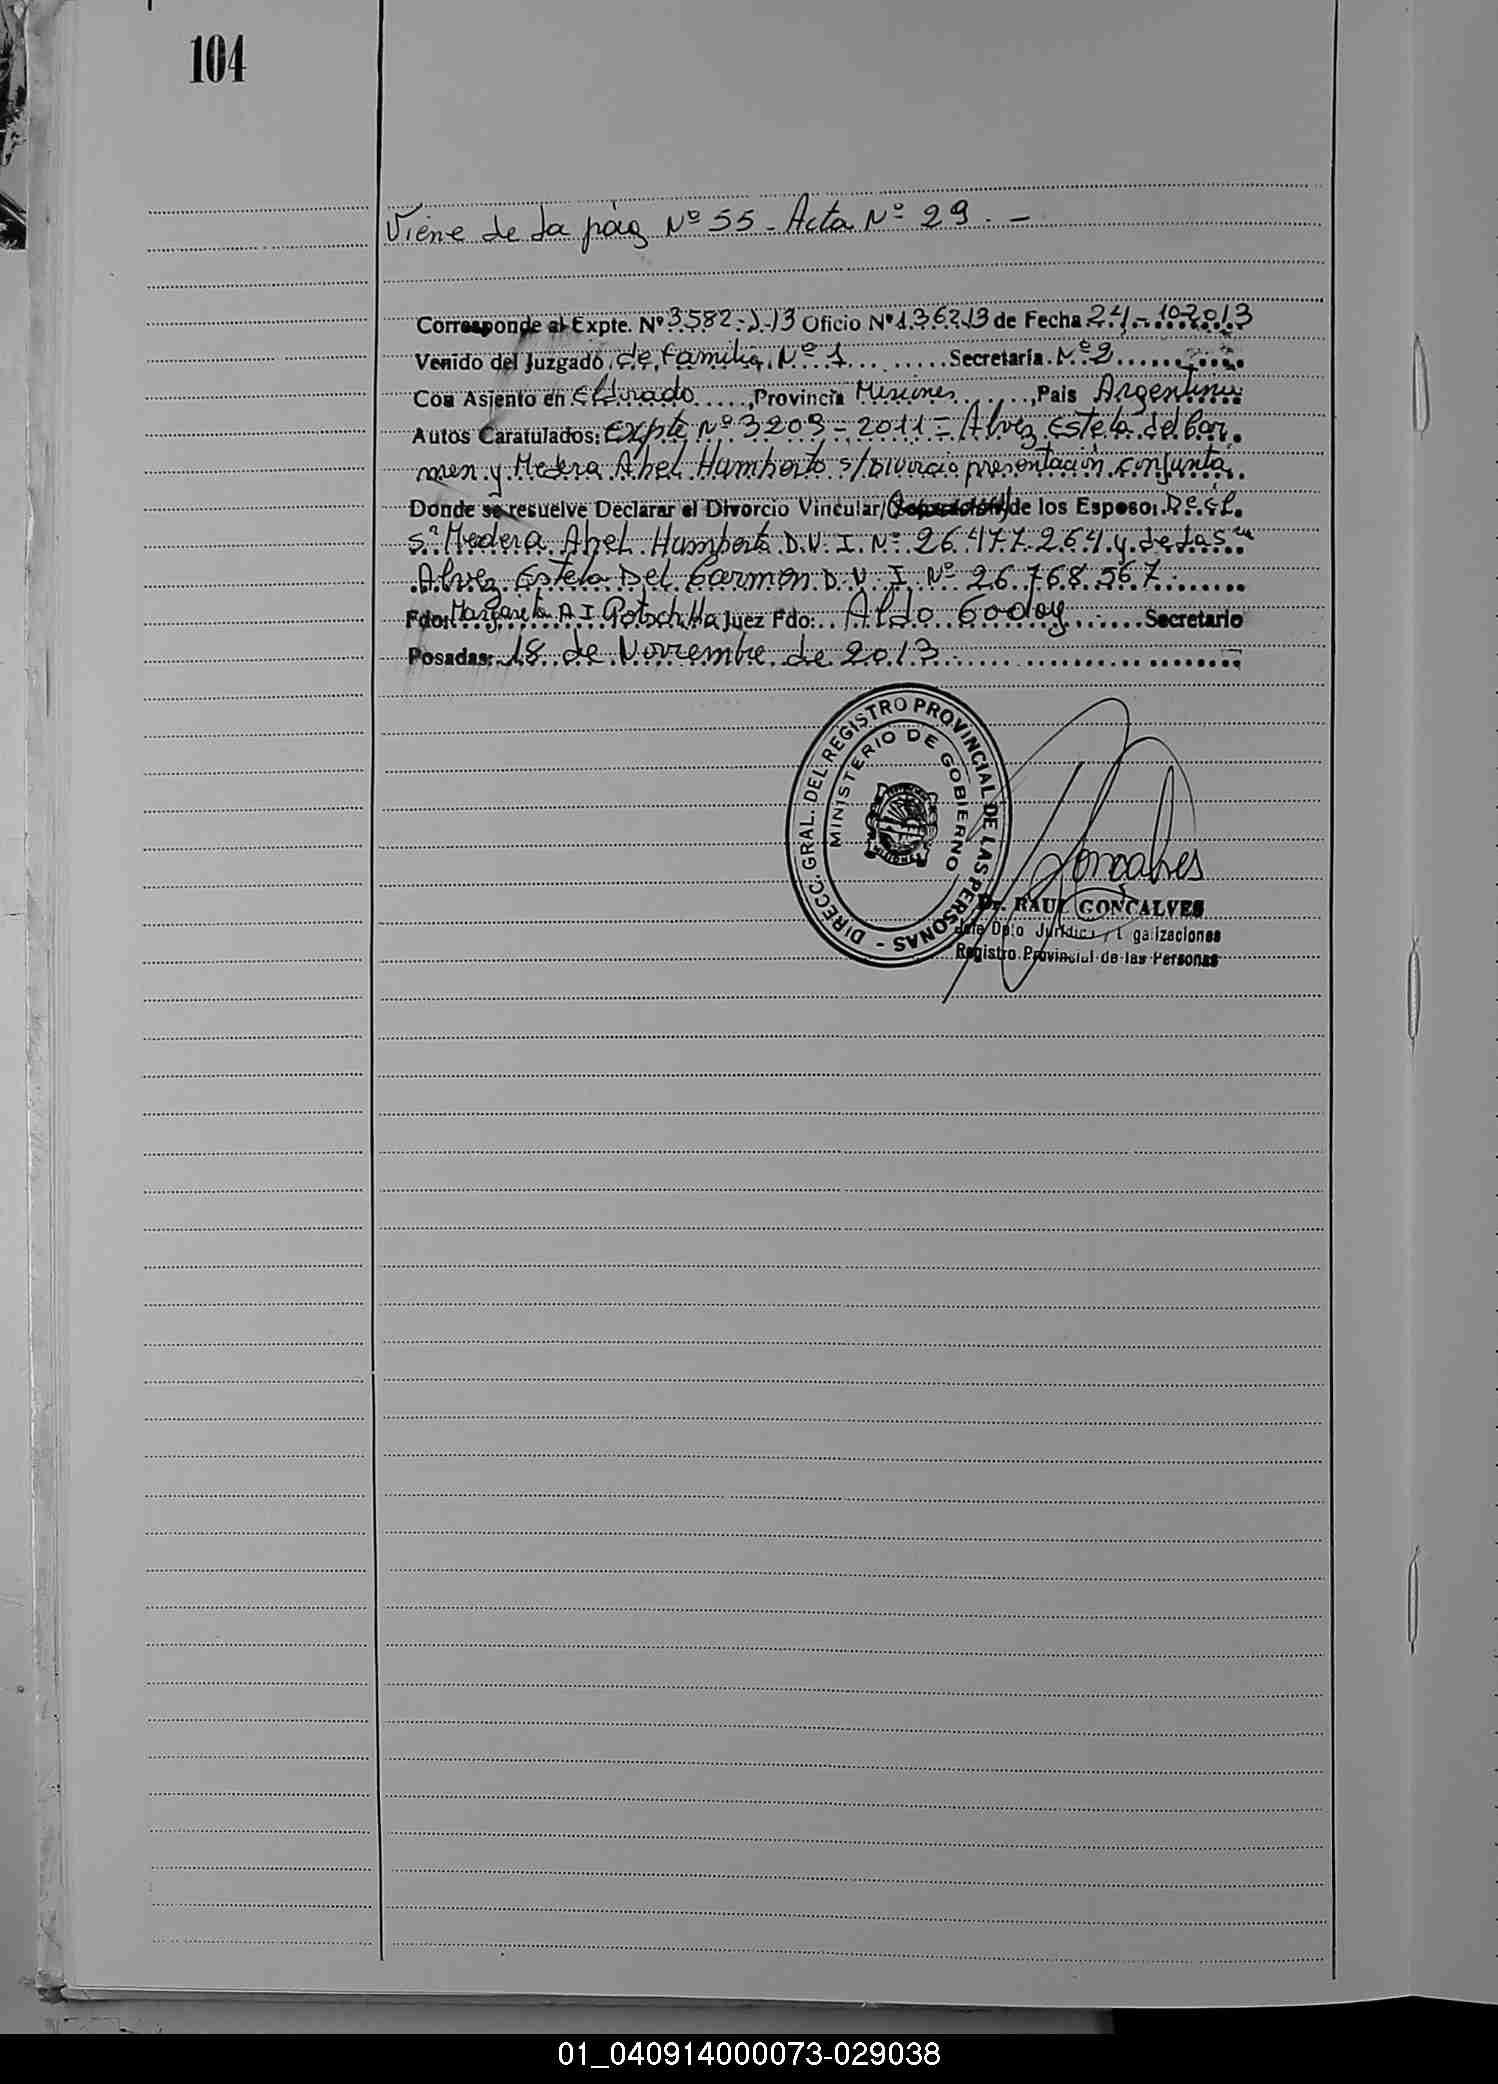 104
Viene de la pág Nº 55 - Acta Nº 29. -
Corresponde al Expte. Nº 3582-J-13 Oficio Nº 1362-13 de Fecha 24-10-2013
Venido del Juzgado de Familia Nº 1 Secretaría Nº 2
Con Asiento en Eldorado, Provincia Misiones, Pais Argentina
Autos Caratulados: Expte Nº 3209-2011 = Alvez Estela del Car
men y Medera Abel Humberto s/Divorcio presentación conjunta
Donde se resuelve Declarar el Divorcio Vincular/ de los Esposos
Sr Medera Abel Humberto D.N.I. Nº 26.477.264 y de la Sra
Alvez Estela Del Carmen D.N.I. Nº 26.768.567
Fdo: Margarita A I Potschka Juez Fdo: Aldo Godoy Secretario
Posadas: 18 de Noviembre de 2013
DIRECC. GRAL. DEL REGISTRO PROVINCIAL DE LAS PERSONAS -
MINISTERIO DE GOBIERNO
MISIONES
Goncalves
Dr. RAUL GONCALVES
Jefe Dpto Juridico
Registro Provincial de las Personas
01_040914000073-029038